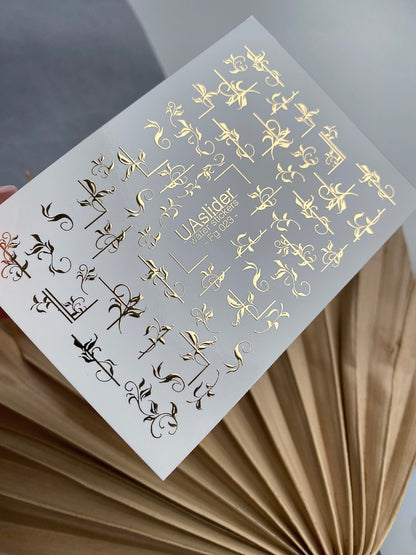 uAslider
water stickers
Fg 023